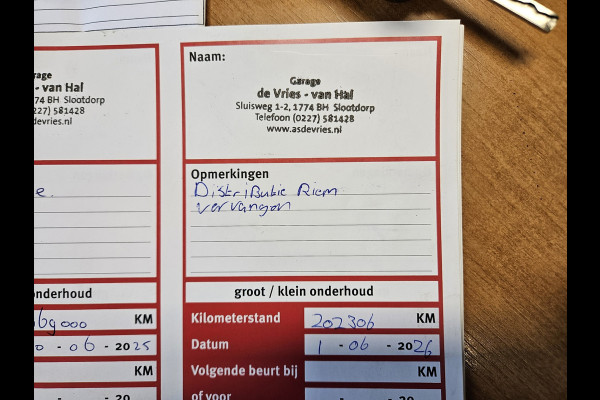 arage
- van Hal
, 1774 BH Slootdorp
227) 581428
sdevries.nl
e.
onderhoud
69000 KM
0 - 06 - 2025
KM
- 20
Naam:
Garage
de Vries - van Hal
Sluisweg 1-2, 1774 BH Slootdorp
Telefoon (0227) 581428
www.asdevries.nl
Opmerkingen
Distributie Riem
vervangen
groot / klein onderhoud
Kilometerstand 202306 KM
Datum 1 - 06 - 2026
Volgende beurt bij KM
of voor - - 20